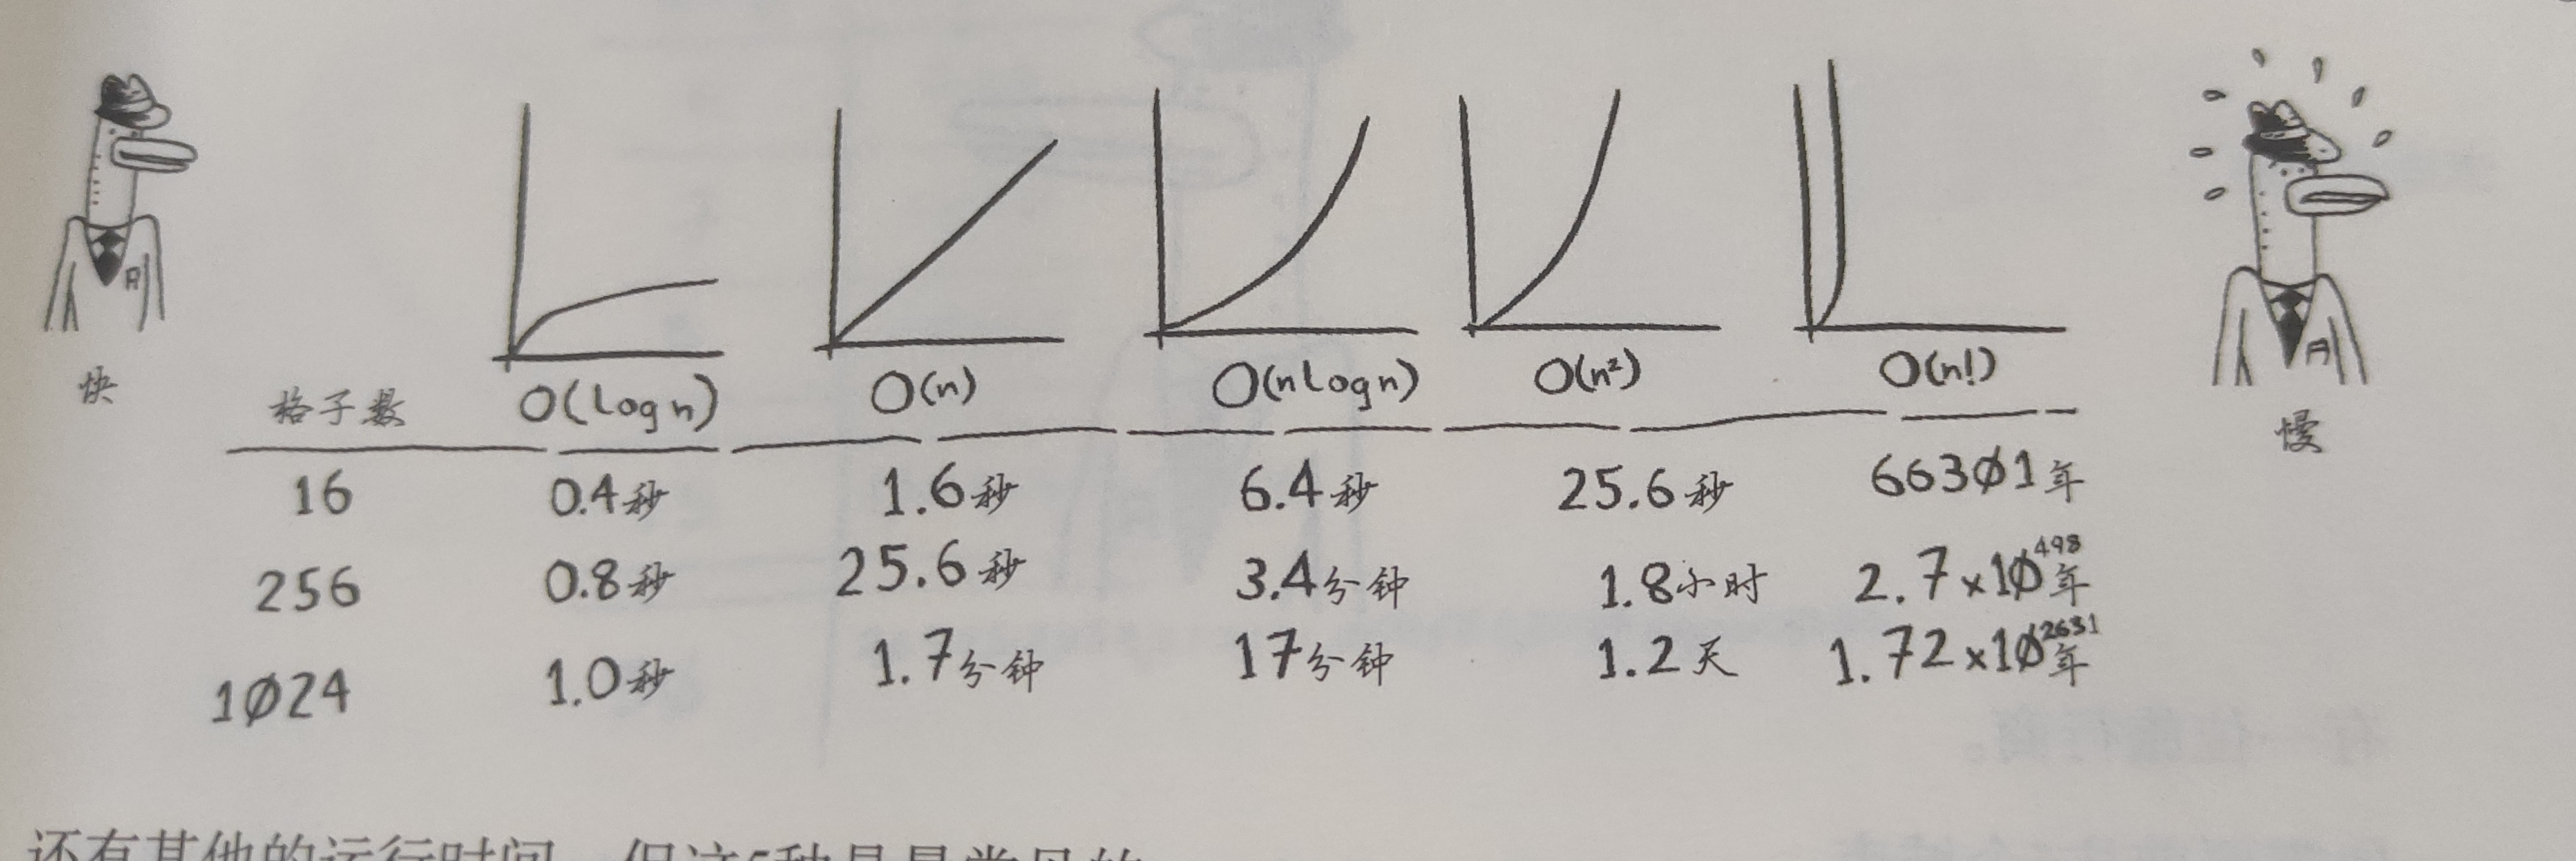 快
格子数 O(logn) O(n) O(nlogn) O(n²) O(n!)
慢
16 0.4秒 1.6秒 6.4秒 25.6秒 66301年
256 0.8秒 25.6秒 3.4分钟 1.8小时 2.7x10⁴⁹⁸年
1024 1.0秒 1.7分钟 17分钟 1.2天 1.72x10²⁶³¹年
还有其他的运行时间，但这5种是最常见的